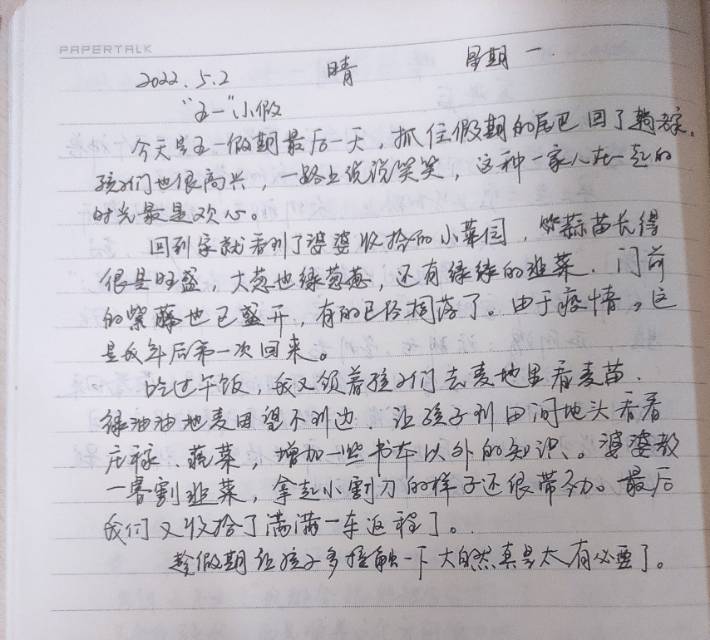 PAPERTALK
2022.5.2 晴 星期一.
"五一"小假
今天是五一假期最后一天，抓住假期的尾巴回了趟老家.
孩子们也很高兴，一路上说说笑笑，这种一家人在一起的
时光最是欢心。
回到家就看到了婆婆收拾的小菜园，蒜苗长得
很是旺盛，大葱也绿葱葱，还有绿绿的韭菜.门前
的紫藤也已盛开，有的已经凋落了。由于疫情，这
是我年后第一次回来。
吃过午饭，我又领着孩子们去麦地里看麦苗.
绿油油地麦田望不到边 让孩子到田间地头看看
庄稼、蔬菜，增加一些书本以外的知识、。婆婆教
一割韭菜，拿起小割刀的样子还很带劲。最后
我们又收拾了满满一车返程了。
趁假期让孩子多接触一下大自然真是太有必要了。